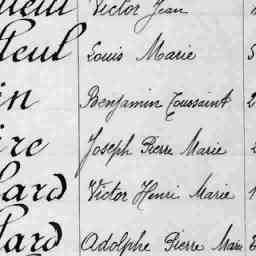 Victor Jean
teul Louis Marie 5
in Benjamin Toussaint 2
ire Joseph Pierre Marie 2
lard Victor Henri Marie 1
lard Adolphe Pierre Marie 3